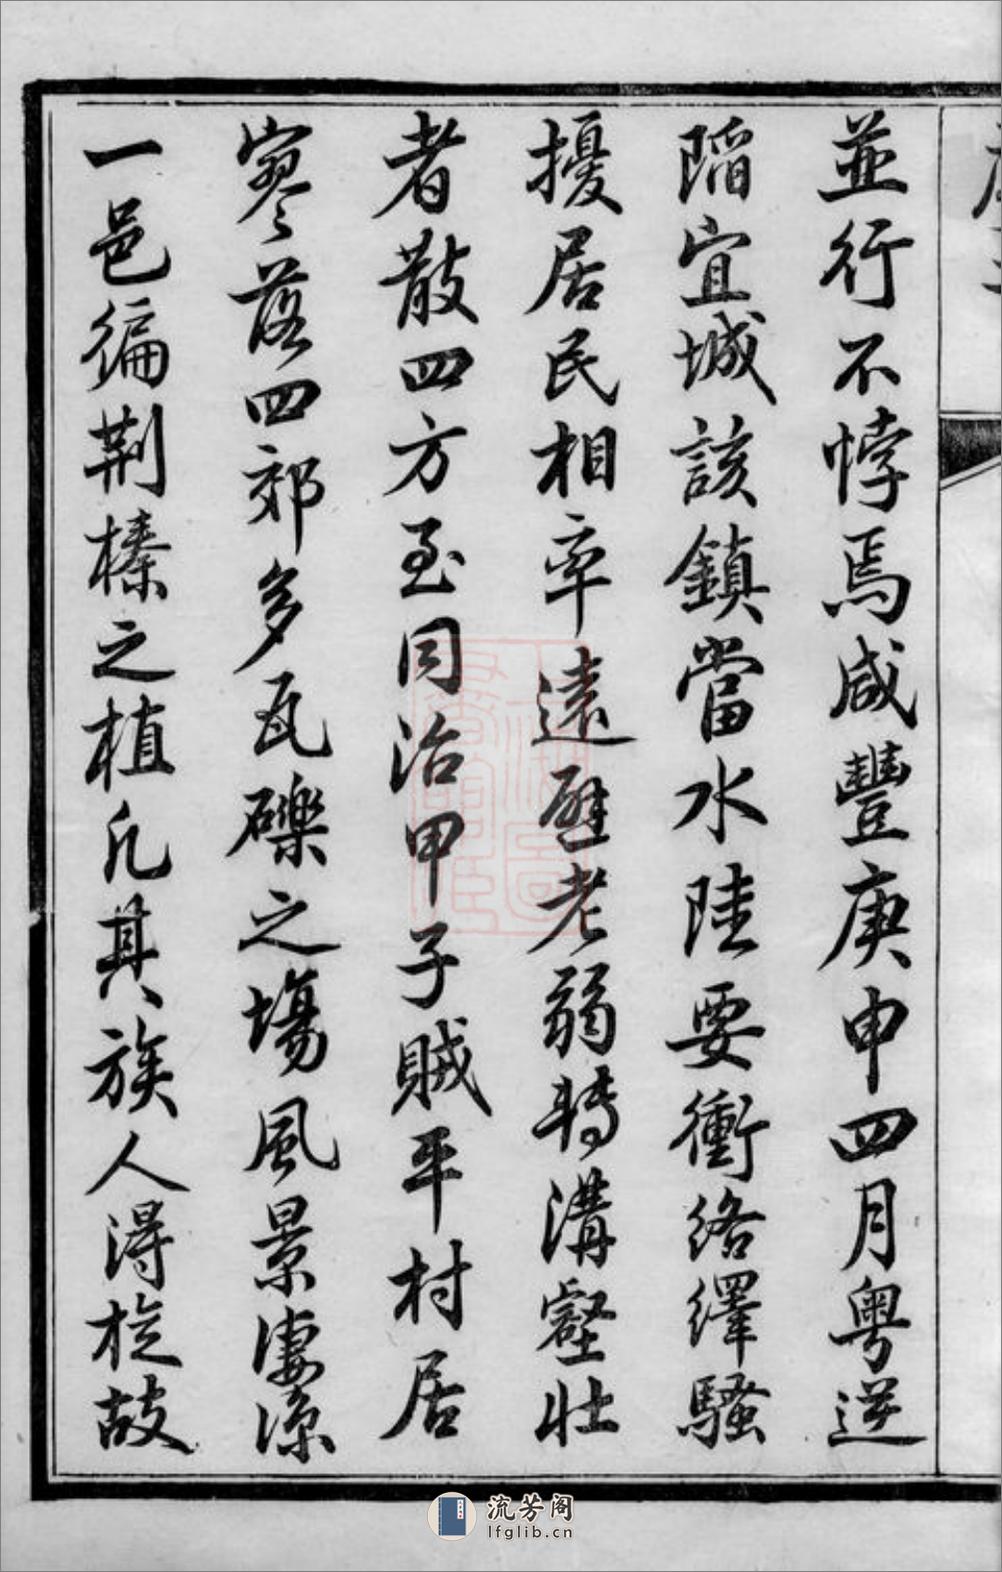 並行不悖焉咸豐庚申四月粤逆
陷宜城該鎮當水陸要衝絡繹騷
擾居民相率遠避老弱轉溝壑壯
者散四方至同治甲子賊平村居
寥落四郊多瓦礫之場風景淒涼
一邑徧荆榛之植凡其族人得旋故
流芳阁
lfglib.cn